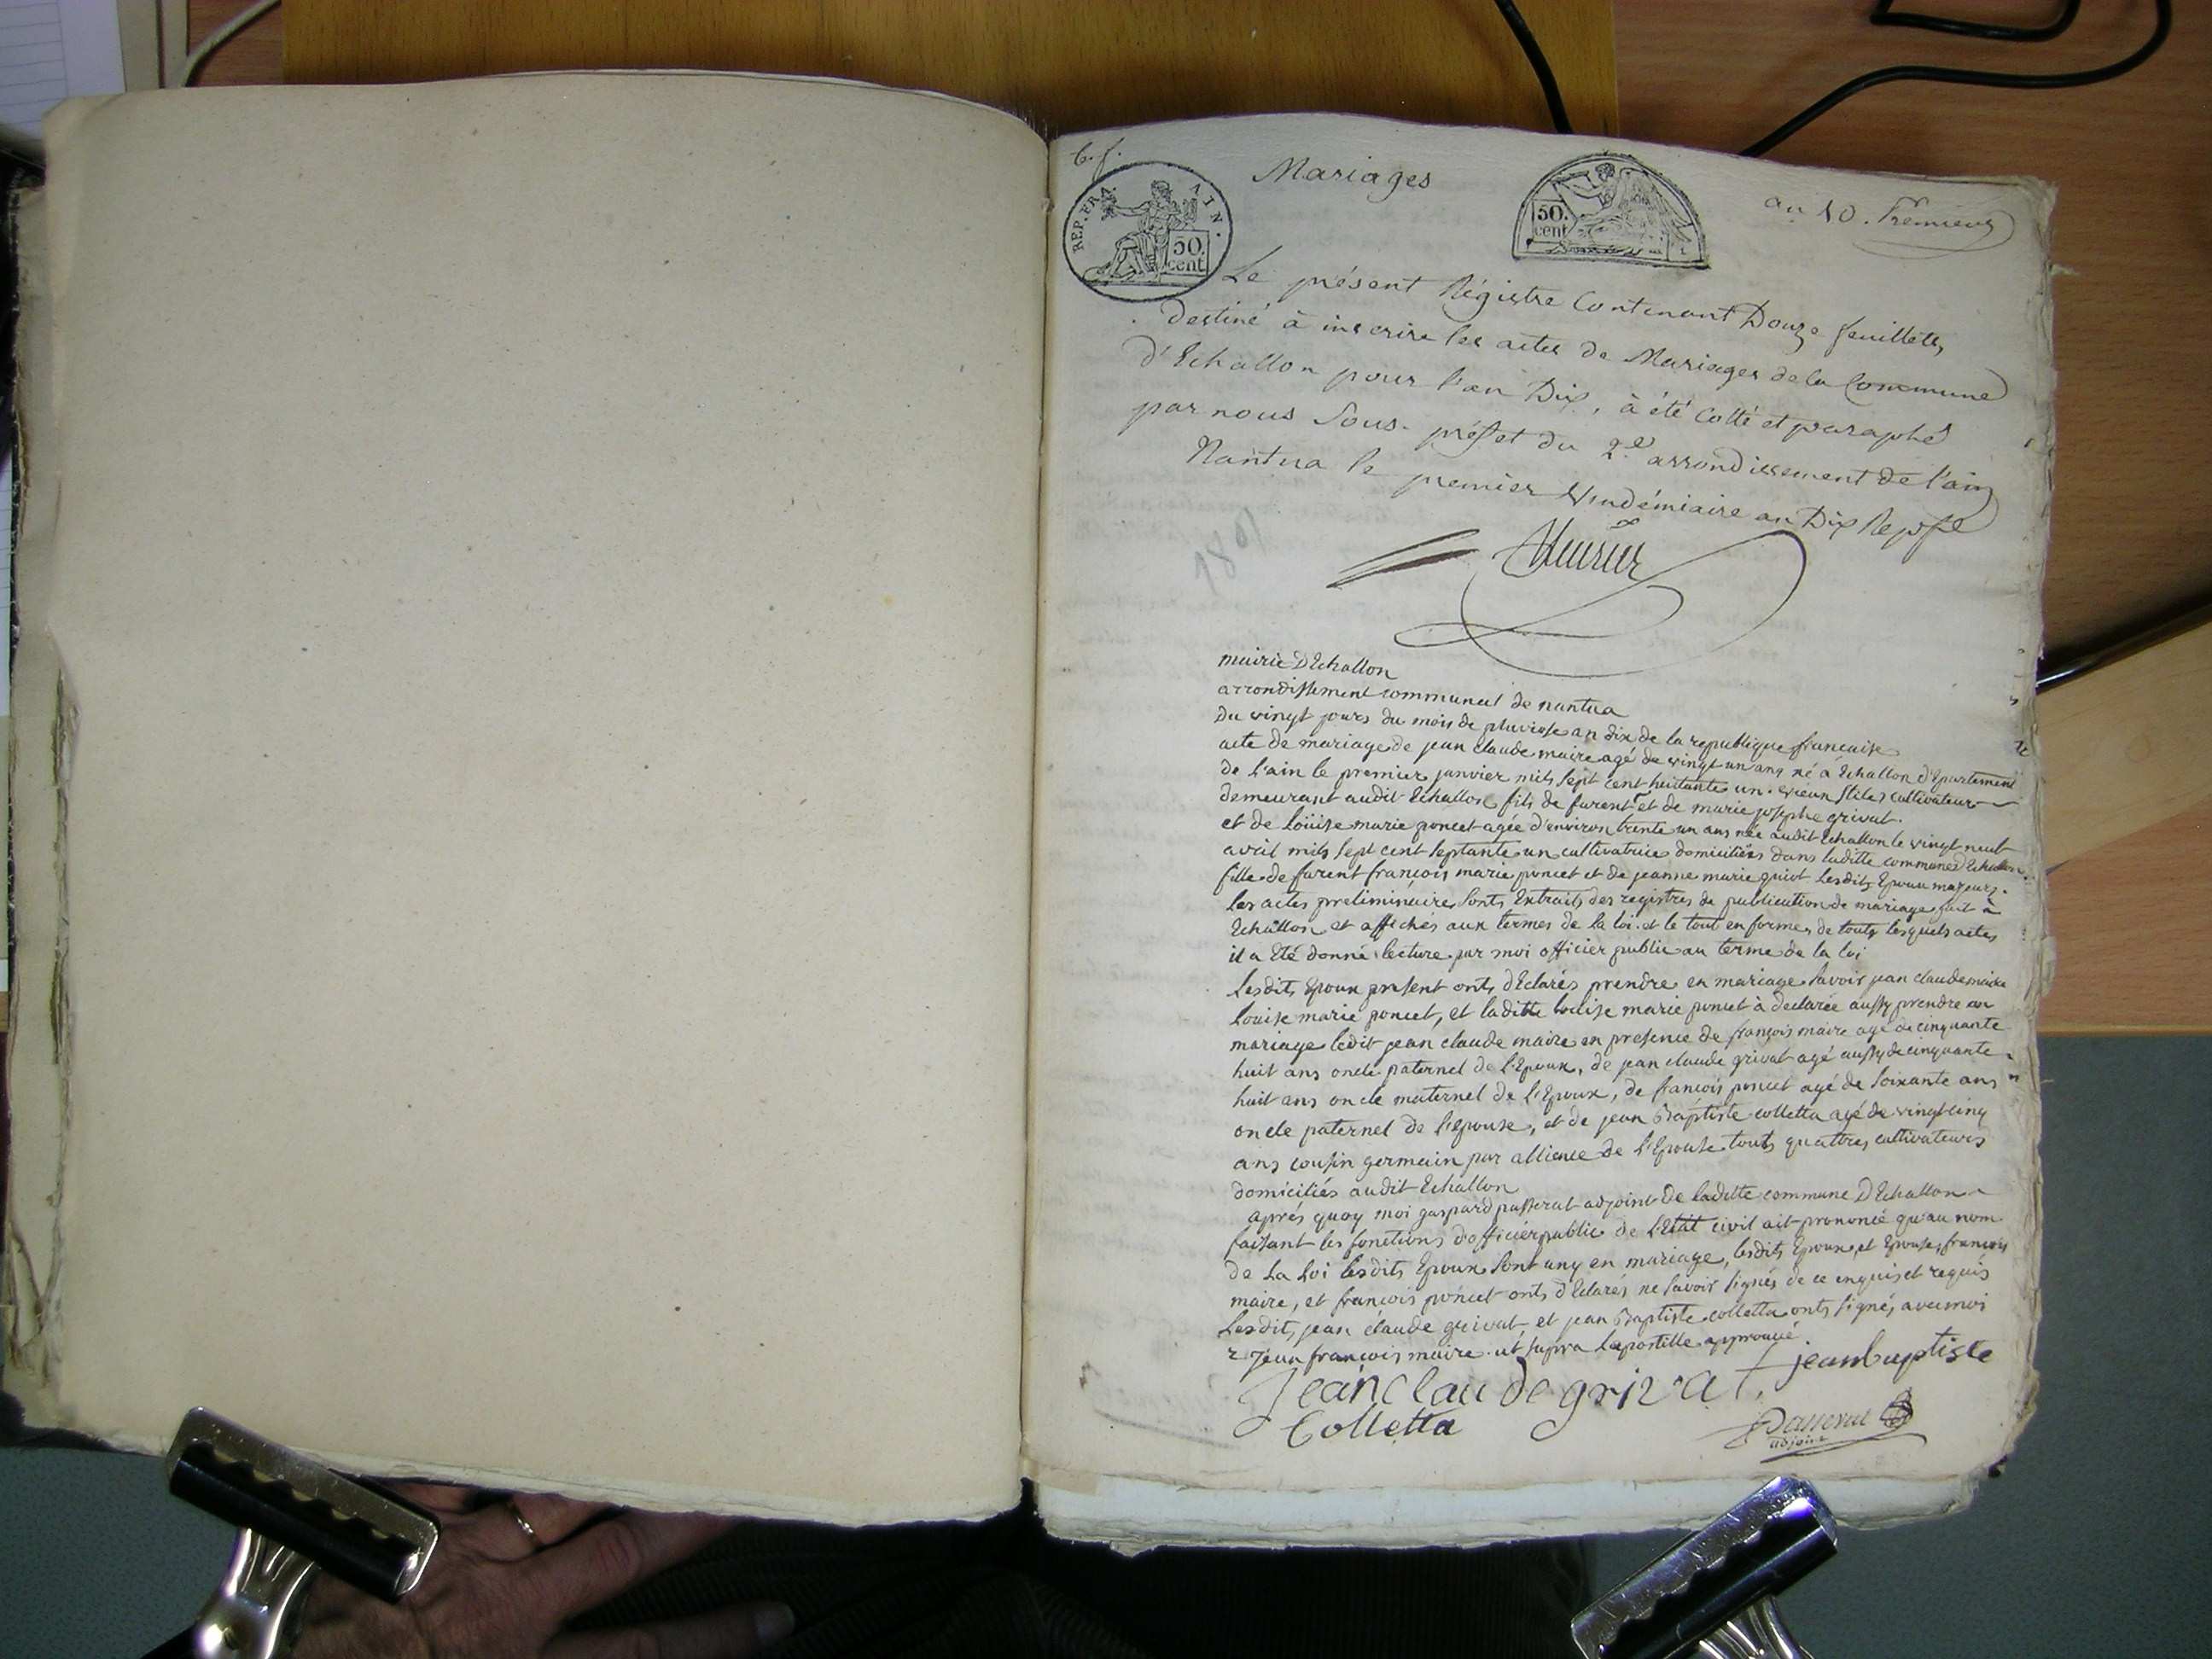 Mariages
an 10. Premier
REP. FRA. AIN.
50. cent.
50. cent
Le présent Régistre Contenant Douze feuillets,
destiné à inscrire les actes de Mariages de la Commune
d'Echallon pour l'an Dix, à été Cotté et paraphé
par nous Sous-préfet du 2.e arrondissement de l'ain
Nantua le premier Vendémiaire an Dix Repfe
1801
mairie d'Echallon
arrondissement communal de nantua
du vingt jours du mois de pluviose an dix de la republique francaise
acte de mariage de jean claude maire agé de vingt un ans né à Echallon d'Epartement
de l'ain le premier janvier mils sept cent huitante un. vieux stile, cultivateur
demeurant audit Echallon fils de furent et de marie josephe grivat.
et de Loüise marie poncet agée d'environ trente un ans née audit Echallon le vingt neuf
avril mils sept cent septante un cultivatrice domiciliées dans laditte commune d'Echallon
fille de furent françois marie poncet et de jeanne marie guiot lesdits Epoux majeurs.
les actes preliminaire sonts Extraits des registres de publication de mariage fait à
Echallon et affichés aux termes de la loi. et le tout en forme, de touts lesquels actes,
il a Eté donné lecture par moi officier public au terme de la loi
lesdits Epoux present onts d'Eclarés prendre en mariage savoir jean claude maire
Louise marie poncet, et laditte louise marie poncet à declarée aussy prendre en
mariage ledit jean claude maire en presence de françois maire agé de cinquante
huit ans oncle paternel de l'Epoux, de jean claude grivat agé aussy de cinquante
huit ans oncle maternel de l'Epoux, de francois poncet agé de soixante ans
oncle paternel de l'epouse, et de jean Baptiste colletta agé de vingt cinq
ans cousin germain par alliance de l'Epouse touts quattres cultivateurs
domiciliés audit Echallon
après quoy moi gaspard passerat adjoint de laditte commune d'Echallon
faisant les fonctions d'officier public de l'Etat civil ait prononcé qu'au nom
de La Loi lesdits Epoux sont uny en mariage, lesdits Epoux, et Epouse, francois
maire, et francois poncet onts d'Eclarés ne savoir signés de ce enquis et requis
Lesdits jean claude grivat et jean Baptiste colletta onts signés avec moi
jean francois maire. ut supra l'apostille approuvé
Jean Claude grivat. jean baptiste
Colletta
Passerat
adjoint